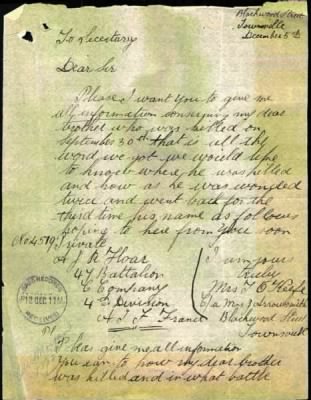 Blackwood Street
Townsville
December 5th
To Secetary
Dear Sir
Please I want you to give me
all information conserning my dear
brother who was killed on
September 30th that is all the
word we got we would like
to know where he was killed
and how as he was wonded
twice and went back for the
third time his name as follows
hoping to here from you soon
No 4519 Private
A J R Hoar
47 Battalion
C Company
4th Division
A I F France
I am yours
truly
Mrs J O'Keefe
C/o Mrs J Arrowsmith
Blackwood Street
Townsvill
12 DEC 1917
RECEIVED
Pleas give me all information
you can to how my dear brother
was killed and in what battle